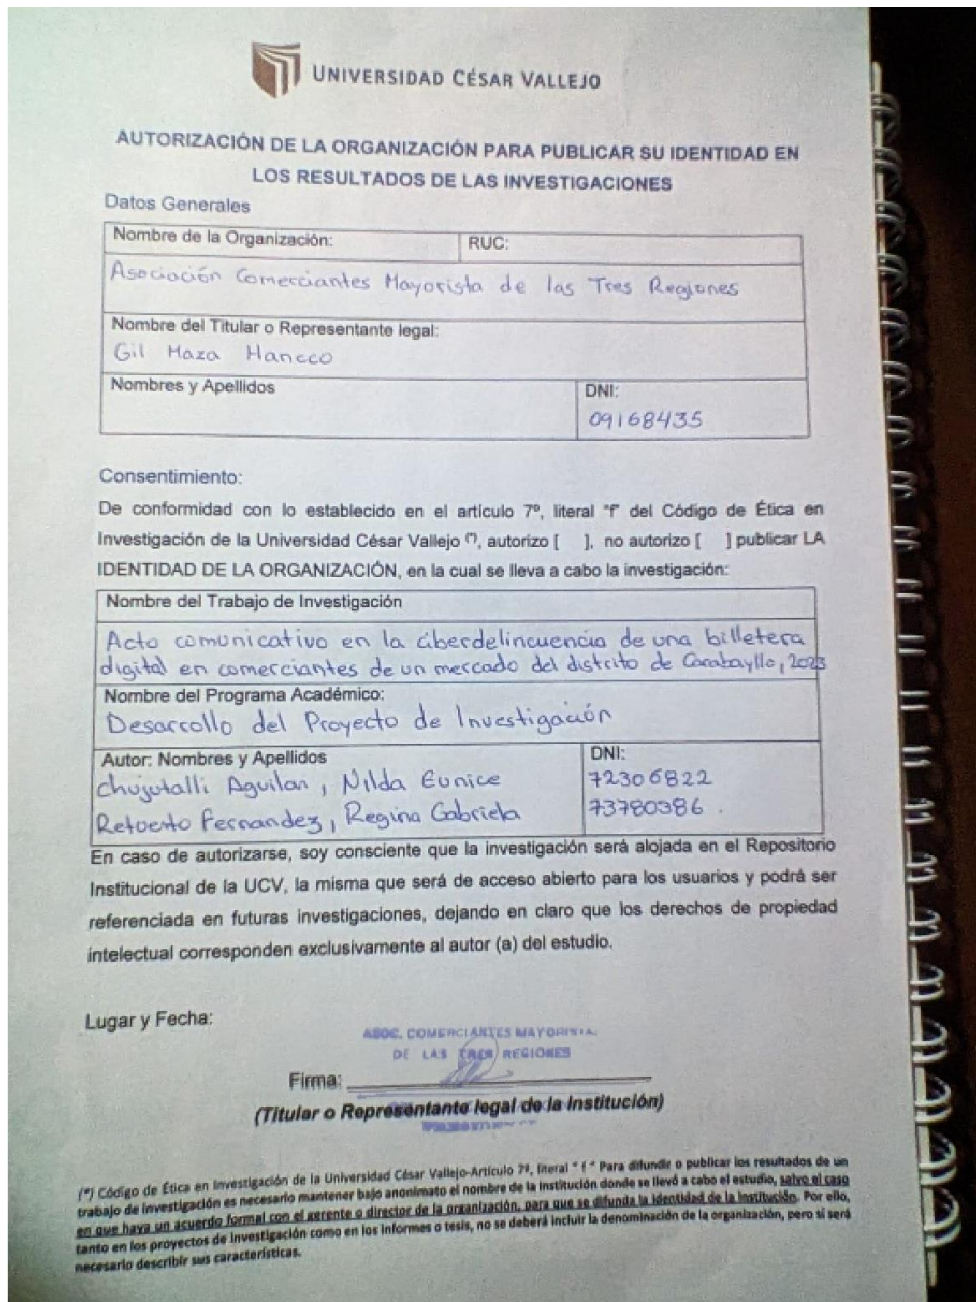 UNIVERSIDAD CÉSAR VALLEJO
AUTORIZACIÓN DE LA ORGANIZACIÓN PARA PUBLICAR SU IDENTIDAD EN
LOS RESULTADOS DE LAS INVESTIGACIONES
Datos Generales
Nombre de la Organización: RUC:
Asociación Comerciantes Mayorista de las Tres Regiones
Nombre del Titular o Representante legal:
Gil Maza Mancco
Nombres y Apellidos DNI:
09168435
Consentimiento:
De conformidad con lo establecido en el artículo 7º, literal "f" del Código de Ética en
Investigación de la Universidad César Vallejo (*), autorizo [ ], no autorizo [ ] publicar LA
IDENTIDAD DE LA ORGANIZACIÓN, en la cual se lleva a cabo la investigación:
Nombre del Trabajo de Investigación
Acto comunicativo en la ciberdelincuencia de una billetera
digital en comerciantes de un mercado del distrito de Carabayllo, 2023
Nombre del Programa Académico:
Desarrollo del Proyecto de Investigación
Autor: Nombres y Apellidos DNI:
Chujutalli Aguilar, Nilda Eunice 72306822
Retuerto Fernandez, Regina Gabriela 73780386.
En caso de autorizarse, soy consciente que la investigación será alojada en el Repositorio
Institucional de la UCV, la misma que será de acceso abierto para los usuarios y podrá ser
referenciada en futuras investigaciones, dejando en claro que los derechos de propiedad
intelectual corresponden exclusivamente al autor (a) del estudio.
Lugar y Fecha:
ASOC. COMERCIANTES MAYORISTA
DE LAS TRES REGIONES
Firma:
(Titular o Representante legal de la Institución)
(*) Código de Ética en Investigación de la Universidad César Vallejo-Artículo 7º, literal " f " Para difundir o publicar los resultados de un
trabajo de investigación es necesario mantener bajo anonimato el nombre de la institución donde se llevó a cabo el estudio, salvo el caso
en que haya un acuerdo formal con el gerente o director de la organización, para que se difunda la identidad de la institución. Por ello,
tanto en los proyectos de investigación como en los informes o tesis, no se deberá incluir la denominación de la organización, pero sí será
necesario describir sus características.